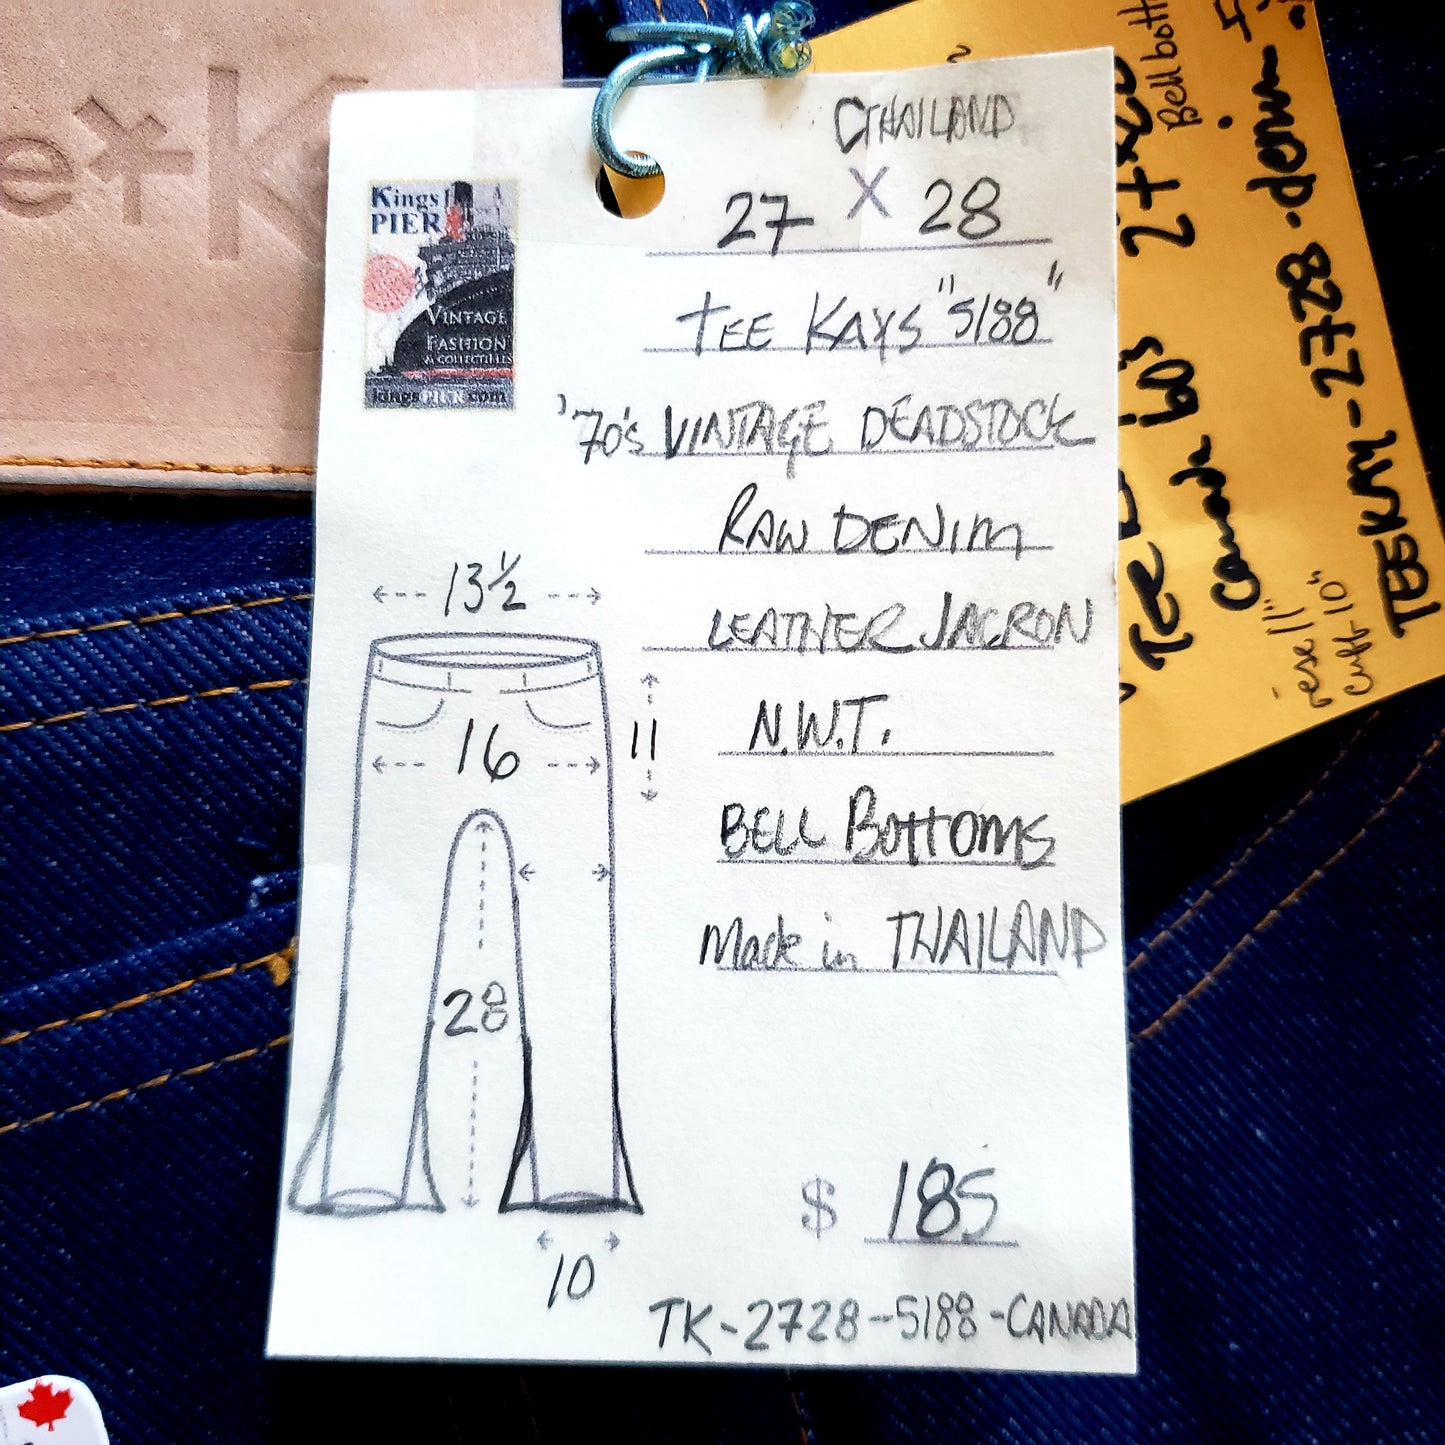 e*K
CTHAILAND
27 X 28
Kings
PIER
VINTAGE
FASHION
& COLLECTIBLES
kingsPIER.com
TEE KAYS "5188"
'70's VINTAGE DEADSTOCK
RAW DENIM
LEATHER JACRON
N.W.T.
BELL BOTTOMS
Made in THAILAND
13 1/2
16
11
28
10
$ 185
TK-2728-5188-CANADA
Bell bott
27x28
60's
Canada
TEE KAY-2728-denim
rise 11"
cuff-10"